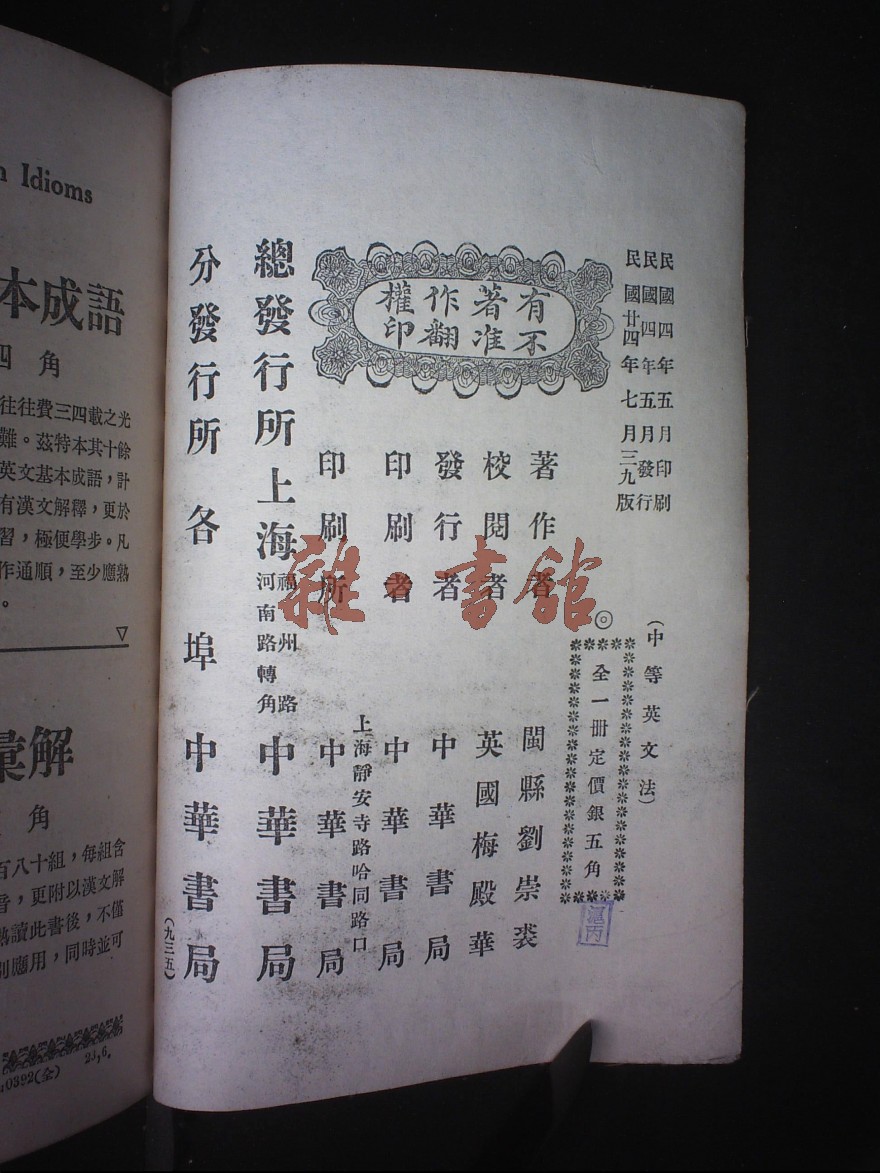 民國四年五月印刷
民國四年五月發行
民國廿四年七月三九版
(中等英文法)
◎全一冊定價銀五角
滬丙
有著作權
不准翻印
著作者 閩縣劉崇裘
校閱者 英國梅殿華
發行者 中華書局
印刷者 中華書局
上海靜安寺路哈同路口
印刷所 中華書局
總發行所 上海 福州路河南路轉角 中華書局
分發行所 各埠 中華書局
(九三五)
雜·書館
Idioms
本成語
四角
往往費三四載之光
難。茲特本其十餘
英文基本成語,計
有漢文解釋,更於
習,極便學步。凡
作通順,至少應熟
。
彙解
角
百八十組,每組含
音,更附以漢文解
熟讀此書後,不僅
別應用,同時並可
0392(全) 23,6.